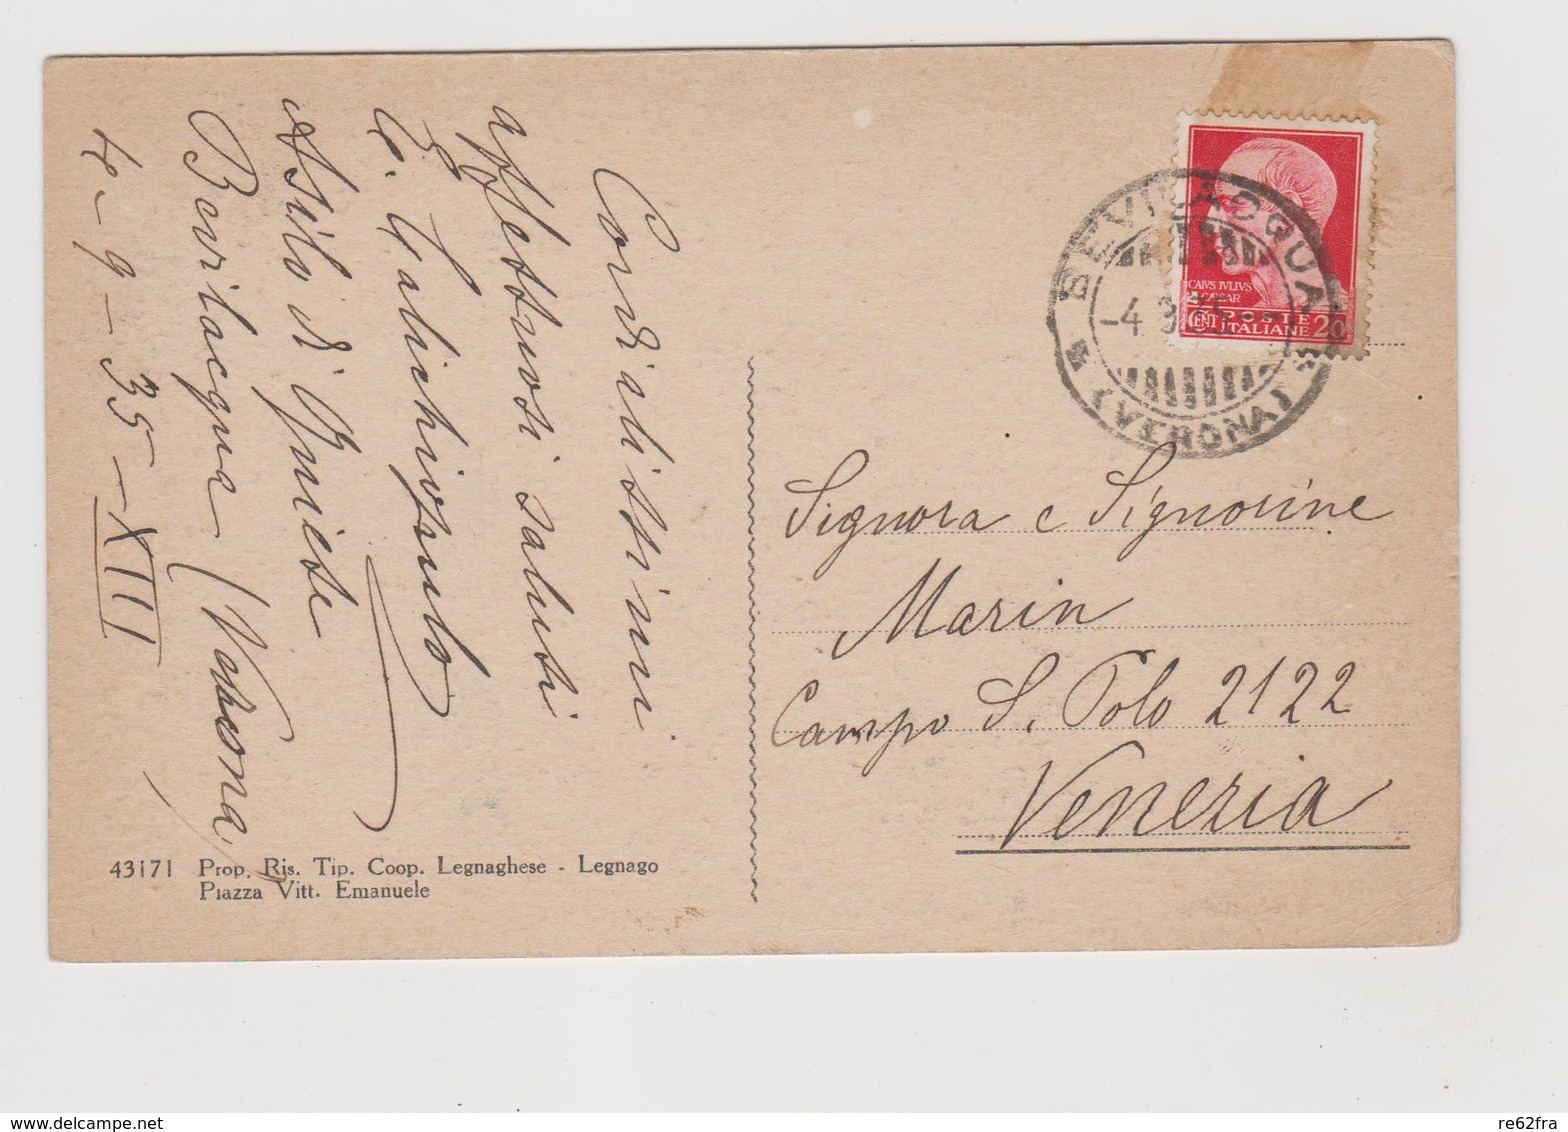 Cordialissimi
affettuosi saluti
Asilo di
Bevilacqua (Verona)
4-9-35-XIII
BEVILACQUA
(VERONA)
CAIVS IVLIVS
CAESAR
CENT POSTE 20
ITALIANE
Signora e Signorine
Marin
Campo S. Polo 2122
Venezia
43171 Prop. Ris. Tip. Coop. Legnaghese - Legnago
Piazza Vitt. Emanuele
re62fra